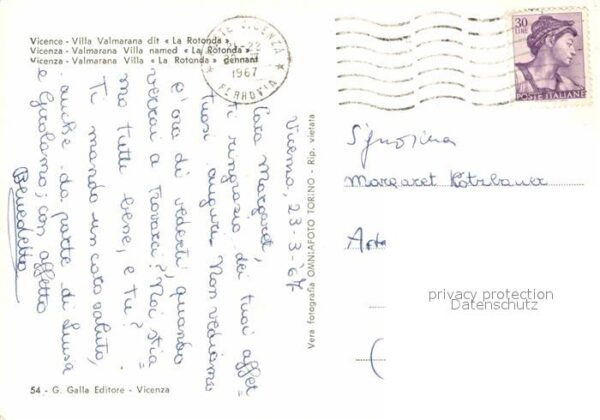 Vicence - Villa Valmarana dit « La Rotonda »
Vicenza - Valmarana Villa named « La Rotonda »
Vicenza - Valmarana Villa « La Rotonda » genannt
VICENZA
1967
FERROVIA
30
LIRE
POSTE ITALIANE
Vicenza, 23-3-67
Cara Margaret,
ti ringrazio dei tuoi affet=
tuosi auguri. Non vediamo
l'ora di vederti, quando
verrai a trovarci? Noi stia=
mo tutti bene, e tu?
Ti mando un caro saluto,
anche da parte di Luisa
e Girolamo; con affetto
Benedetta
Vera fotografia OMNIAFOTO TORINO - Rip. vietata
Signorina
Margaret
Arta
(
privacy protection
Datenschutz
54 - G. Galla Editore - Vicenza